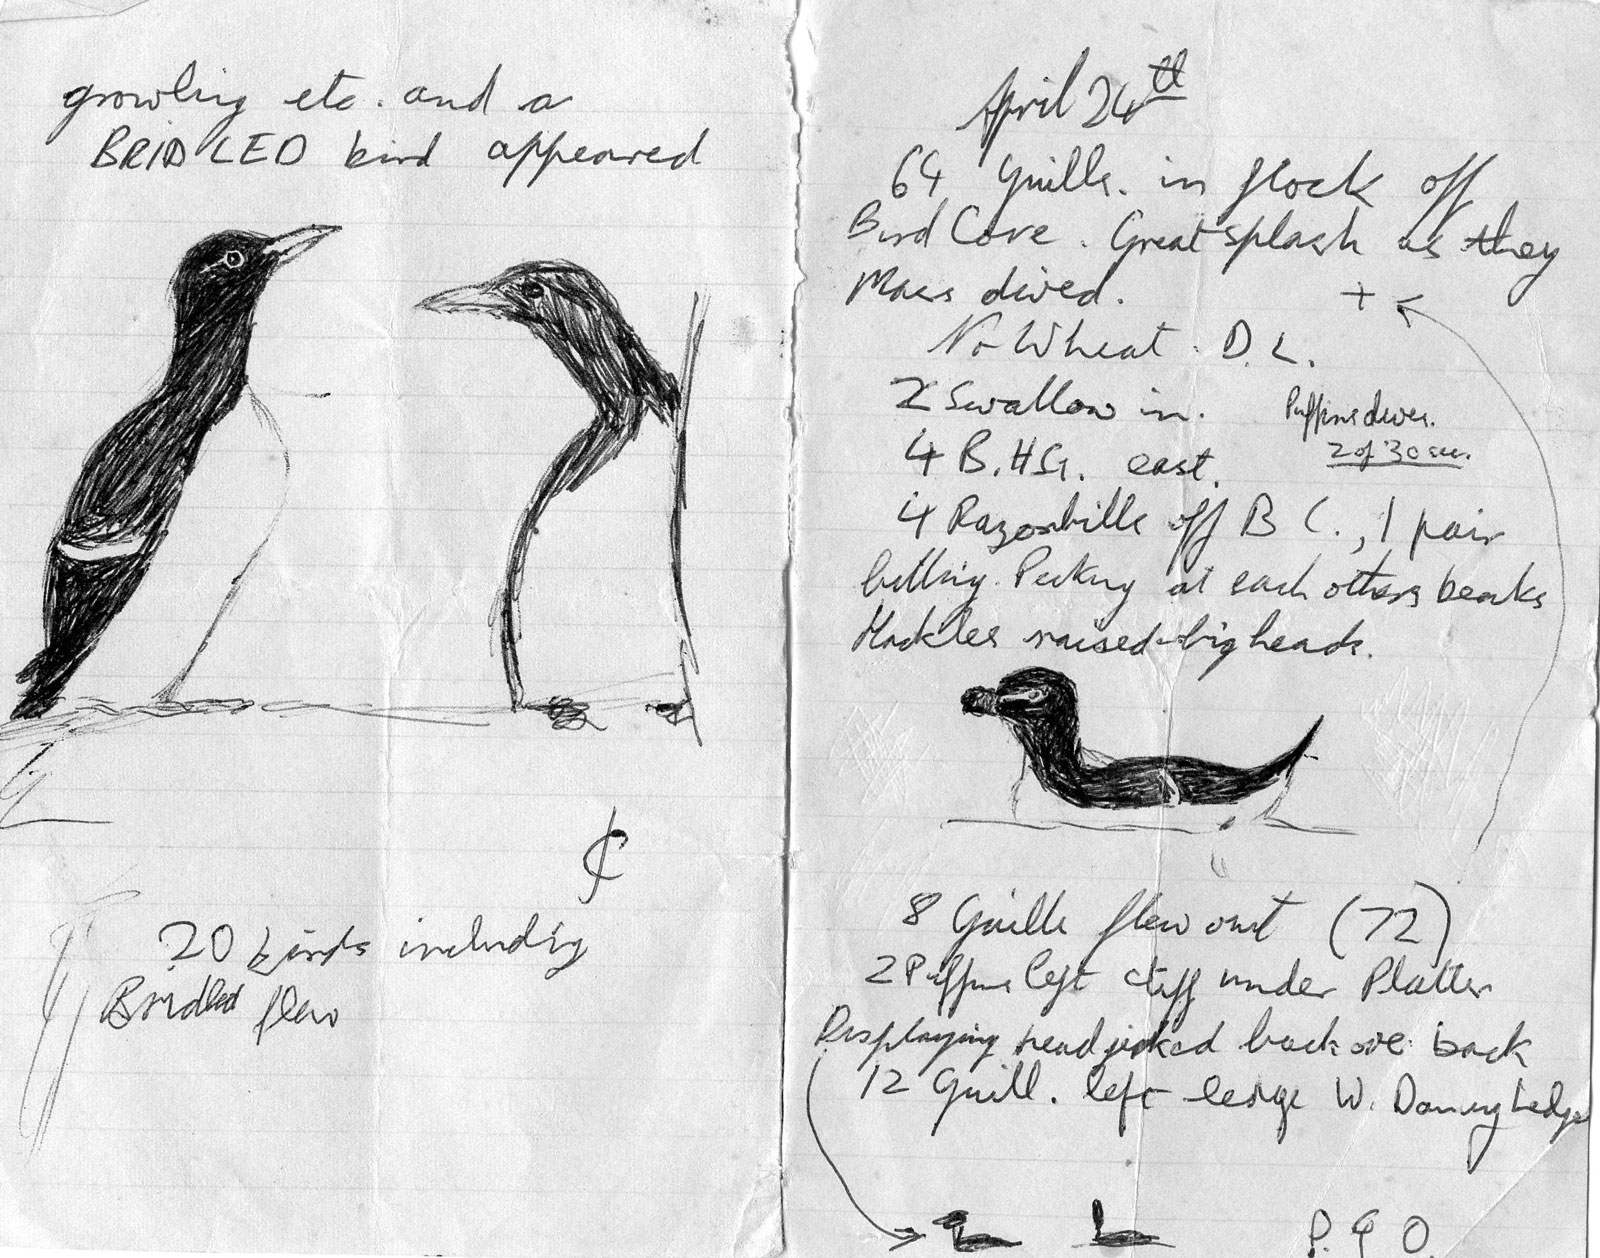 growling etc. and a
BRIDLED bird appeared
20 birds including
Bridled flew
April 24th
64 Guills. in flock off
Bird Cove. Great splash as they
Mass dived. +
No Wheat. D. L.
2 Swallow in. Puffins dives.
4 B.H.G. east. 2 of 30 sec.
4 Razorbills off B C., 1 pair
billing. Pecking at each others beaks
Hackles raised - big heads.
8 Guills flew out (72)
2 Puffins left cliff under Platter
Displaying head jerked back over back
12 Guill. left ledge W. Dancing Ledge